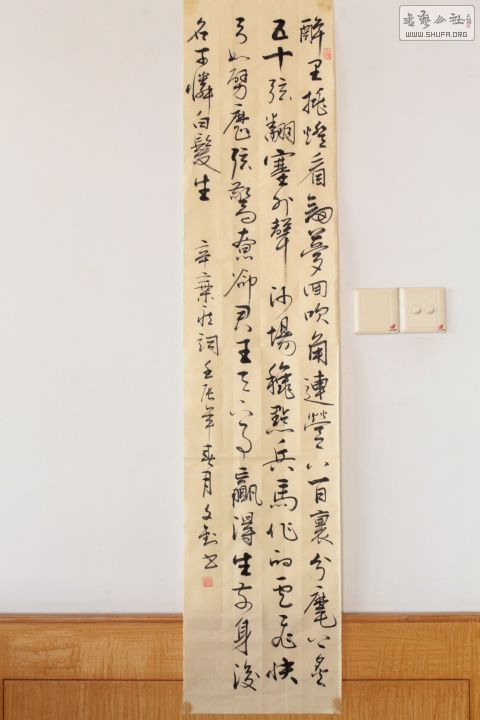 醉里挑燈看劍夢回吹角連營八百裏分麾下炙
五十弦翻塞外聲沙場穐點兵馬作的盧飛快
弓如劈歷弦驚寮卻君王天下事贏得生前身後
名可憐白髮生 辛棄疾詞 壬辰年春月文書
書藝公社
WWW.SHUFA.ORG